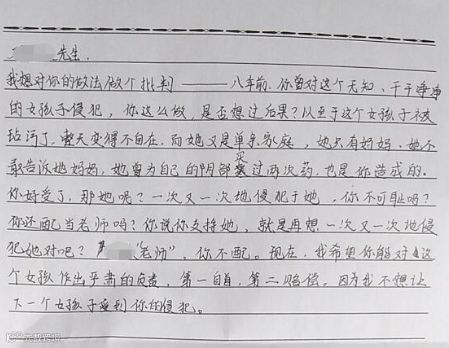 先生:
我想对你的做法做个批判——八年前,你曾对这个无知、干干净净
的女孩子侵犯,你这么做,是否想过后果?以至于这个女孩子被
玷污了,整天变得不自在,而她又是单亲家庭,她只有妈妈,她不
敢告诉她妈妈,她曾为自己的阴部买过两次药,也是你造成的。
你好受了,那她呢?一次又一次地侵犯于她,你不可耻吗?
你还配当老师吗?你说你支持她,就是再想一次又一次地侵
犯她对吧?"老师",你不配。现在,我希望你能对这
个女孩作出平常的负责,第一自首,第二赔偿。因为我不想让
下一个女孩子受到你的侵犯。